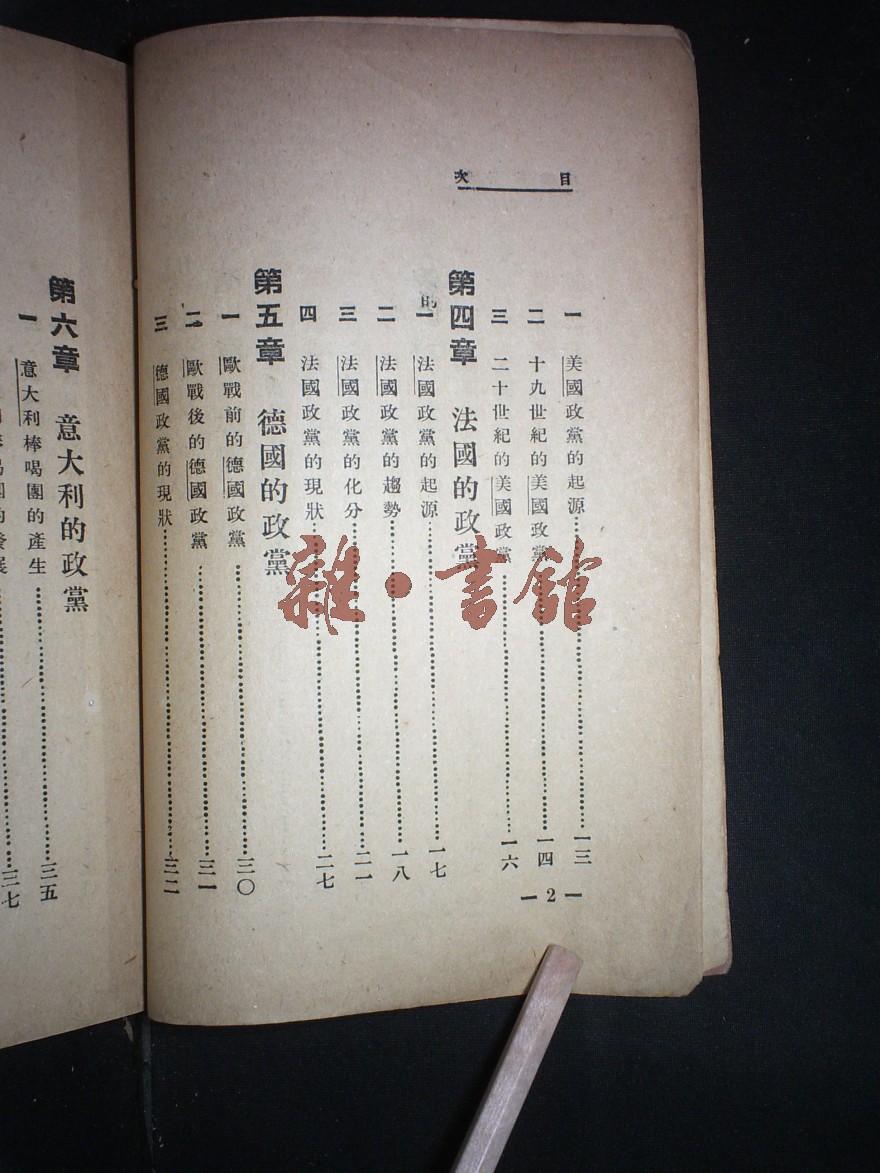 目次
一 美國政黨的起源……一三
二 十九世紀的美國政黨……一四
三 二十世紀的美國政黨……一六
第四章 法國的政黨
一 法國政黨的起源……一七
二 法國政黨的趨勢……一八
三 法國政黨的化分……二一
四 法國政黨的現狀……二七
第五章 德國的政黨
一 歐戰前的德國政黨……三〇
二 歐戰後的德國政黨……三一
三 德國政黨的現狀……三二
— 2 —
第六章 意大利的政黨
一 意大利棒喝團的產生……三五
三七
雜·書館